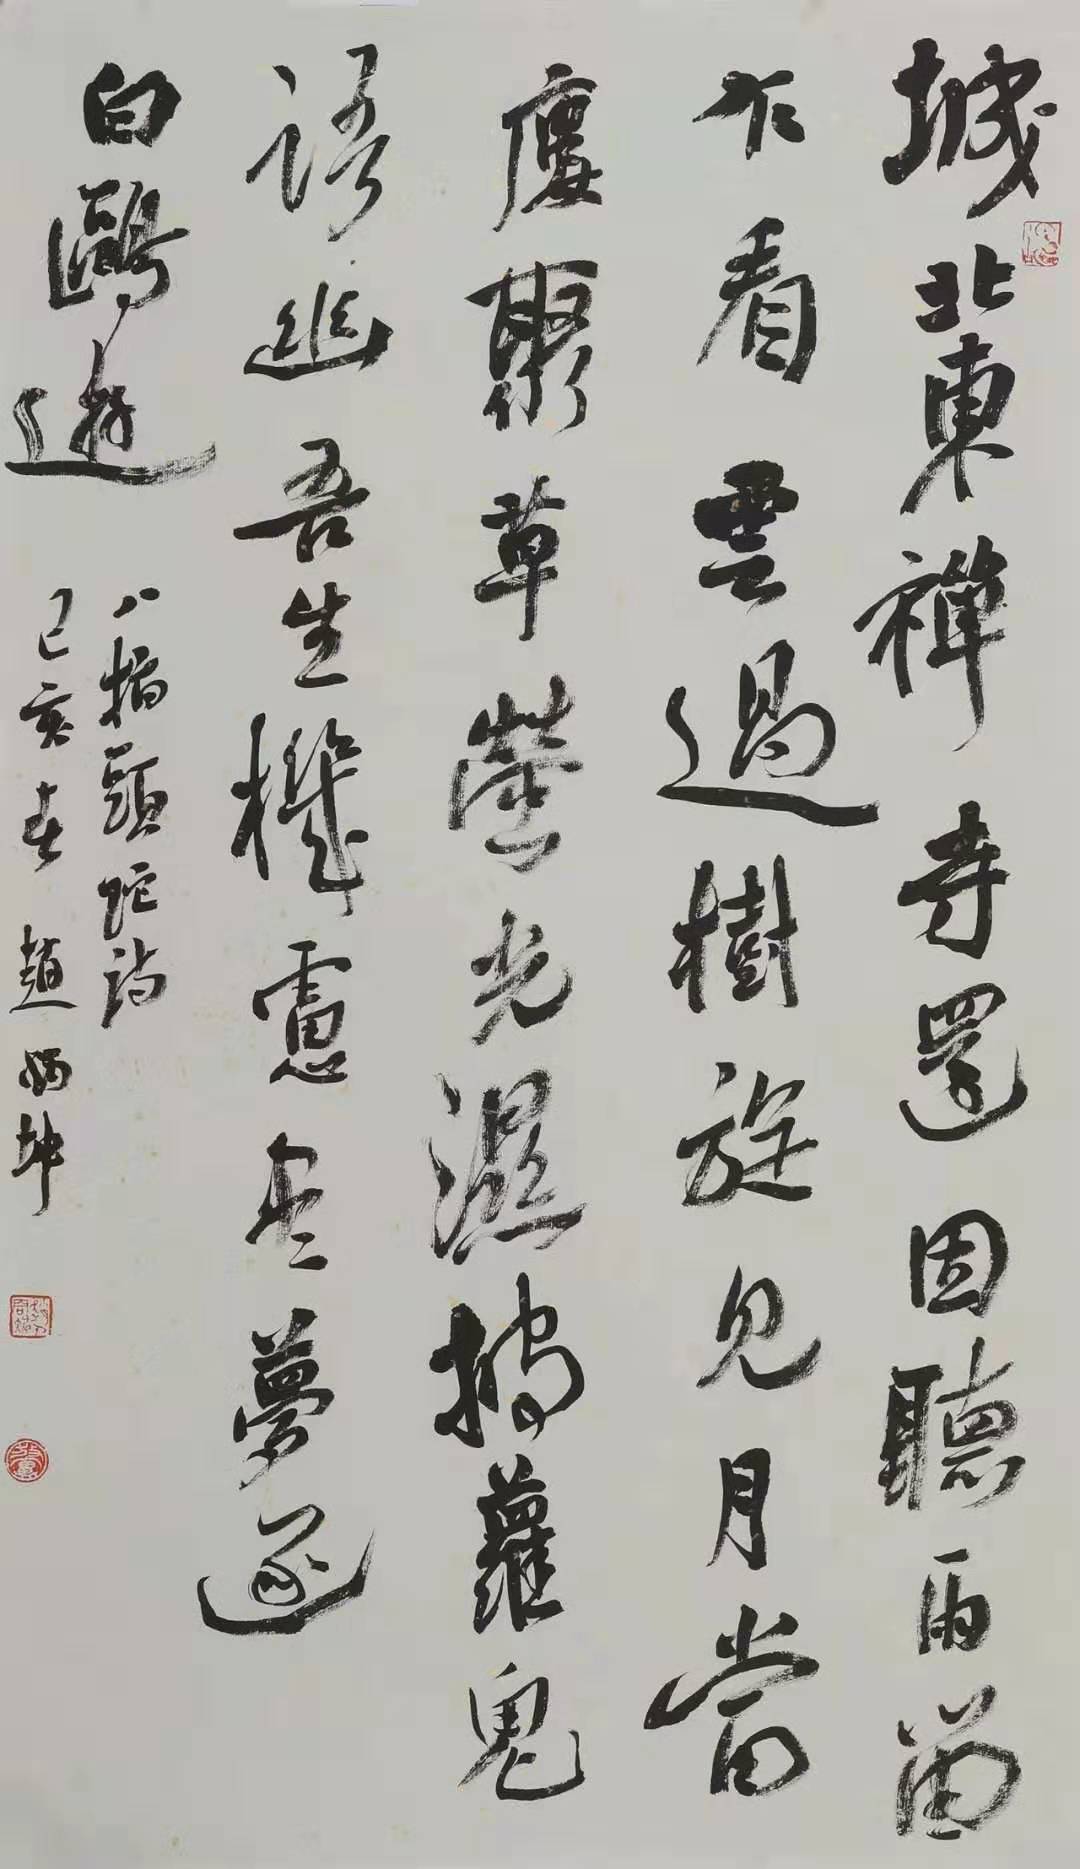 城北東禪寺還因聽雨留
乍看雲過樹旋見月當
廔聚草螢光濕披蘿鬼
語幽吾生機慮盡夢逐
白鷗遊
八指頭陀詩
己亥春 趙炳坤